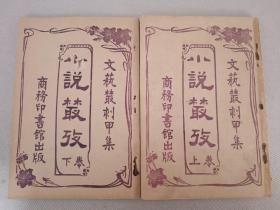 文藝叢刻甲集
小説叢攷
卷上
商務印書館出版
文藝叢刻甲集
小説叢攷
卷下
商務印書館出版